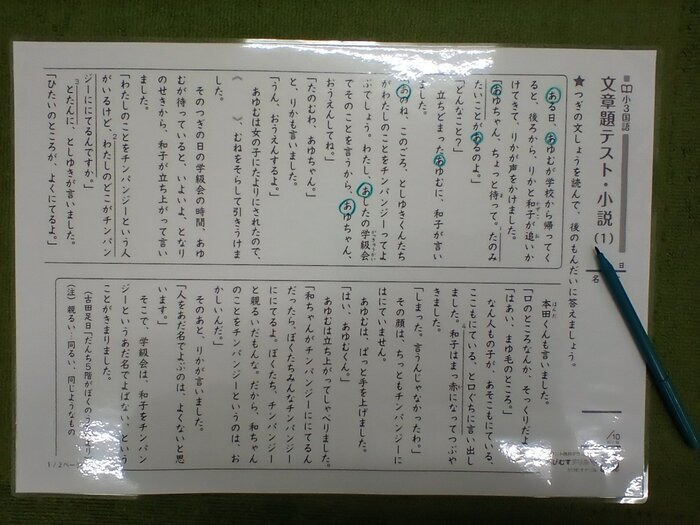 小3国語
文章題テスト・小説(1)
★つぎの文しょうを読んで、後のもんだいに答えましょう。
日
名
/10
ある日、あゆむが学校から帰ってく
ると、後ろから、りかと和子が追いか
けてきて、りかが声をかけました。
「あゆちゃん、ちょっと待って。たのみ
たいことがあるのよ。」
「どんなこと?」
立ちどまったあゆむに、和子が言い
ました。
「あのね、このごろ、としゆきくんたち
がわたしのことをチンパンジーってよ
ぶでしょう。わたし、あしたの学級会
でそのことを言うから、あゆちゃん、
おうえんしてね。」
「たのむわ、あゆちゃん。」
と、りかも言いました。
「うん、おうえんするよ。」
あゆむは女の子にたよりにされたので、
《 》、むねをそらして引きうけま
した。
そのつぎの日の学級会の時間、あゆ
むが待っていると、いよいよ、となり
のせきから、和子が立ち上がって言い
ました。
「わたしのことをチンパンジーという人
がいるけど、わたしのどこがチンパン
ジーににてるんですか。」
とたんに、としゆきが言いました。
「ひたいのところが、よくにてるよ。」
本田くんも言いました。
「口のところなんか、そっくりだよ
「はあい、まゆ毛のところ。」
なん人もの子が、あそこもにている、
ここもにている、と口ぐちに言い出し
ました。和子はまっ赤になってつぶや
きました。
「しまった。言うんじゃなかったわ。」
その顔は、ちっともチンパンジーに
はにていません。
あゆむは、ぱっと手を上げました。
「はい、あゆむくん。」
あゆむは立ち上がってしゃべりました。
「和ちゃんがチンパンジーににてるん
だったら、ぼくたちみんなチンパンジー
ににてるよ。ぼくたち、チンパンジー
と親るいだもんな。だから、和ちゃん
のことをチンパンジーというのは、お
かしいんだ。」
そのあと、りかが言いました。
「人をあだ名でよぶのは、よくないと思
います。」
そこで、学級会は、和子をチンパン
ジーというあだ名でよばない、という
ことがきまりました。
(古田足日「だんち5階がぼくのうち」より
(注)親るい…同るい、同じようなもの
1/2ページ